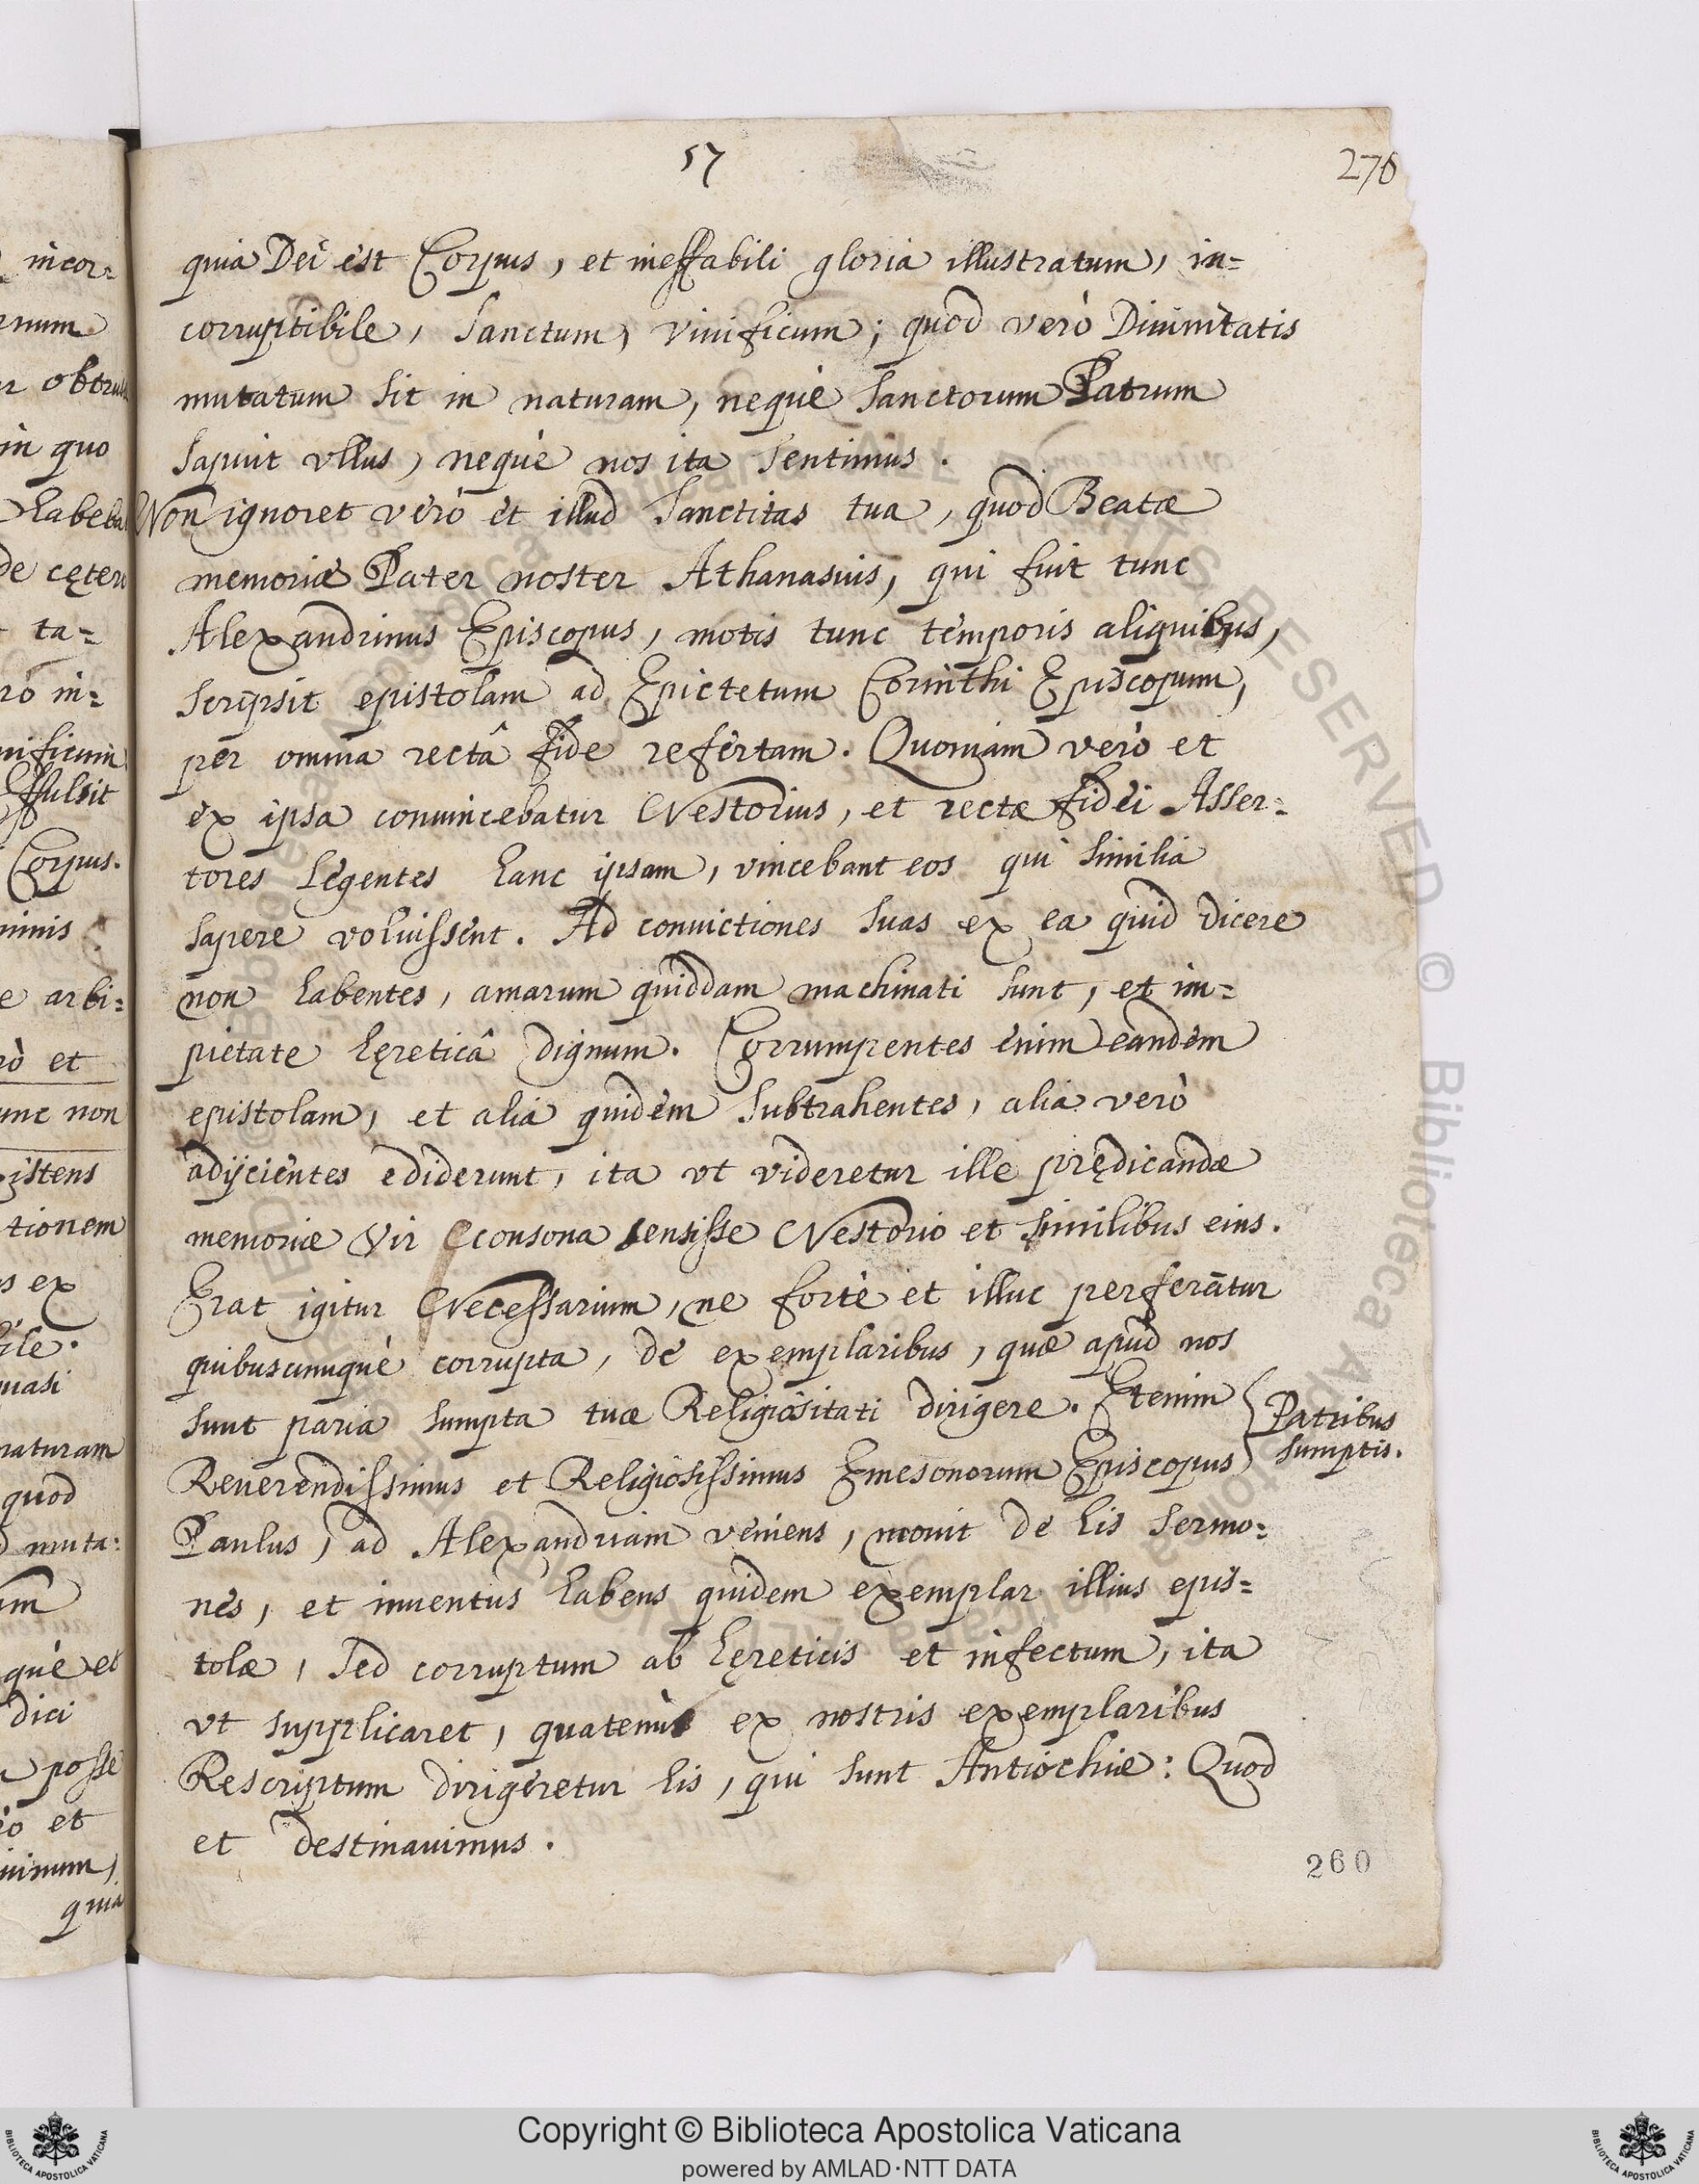 57
276
quia Dei est Corpus, et ineffabili gloria illustratum, in=
corruptibile, Sanctum, viuificum; quod verò Diuinitatis
mutatum sit in naturam, nequè Sanctorum Patrum
sapuit vllus, nequè nos ita sentimus.
Non ignoret verò et illud Sanctitas tua, quod Beatæ
memoriæ Pater noster Athanasius, qui fuit tunc
Alexandrinus Episcopus, motis tunc temporis aliquibus,
scripsit epistolam ad Epictetum Corinthi Episcopum,
per omnia rectâ fide refertam. Quoniam verò et
ex ipsa conuincebatur Nestorius, et rectæ fidei Asser=
tores Legentes hanc ipsam, vincebant eos qui similia
sapere voluissent. Ad convictiones suas ex ea quid dicere
non habentes, amarum quiddam machinati sunt, et im=
pietate hęreticâ dignum. Corrumpentes enim eandem
epistolam, et alia quidem subtrahentes, alia verò
adijcientes ediderunt, ita vt videretur ille prędicandæ
memoriæ Vir consona sensisse Nestorio et similibus eius.
Erat igitur Necessarium, ne fortè et illuc perferātur
quibuscumquè corrupta, de exemplaribus, quæ apud nos
sunt paria sumpta tuæ Religiositati dirigere. Etenim
Reuerendissimus et Religiosissimus Emesonorum Episcopus
Patribus
sumptis.
Paulus, ad Alexandriam veniens, mouit de his sermo=
nes, et inuentus habens quidem exemplar illius epis=
tolæ, sed corruptum ab hęreticis et infectum, ita
vt supplicaret, quatenùs ex nostris exemplaribus
Rescriptum dirigeretur his, qui sunt Antiochiæ: Quod
et destinauimus.
260
incor=
obtru
in quo
habeba
de cęter
ta=
rò in=
Effulsit
Corpus.
arbi=
rò et
unc non
istens
tionem
s ex
quasi
naturam
quod
muta=
què et
dici
posse
quia
Copyright © Biblioteca Apostolica Vaticana
powered by AMLAD·NTT DATA